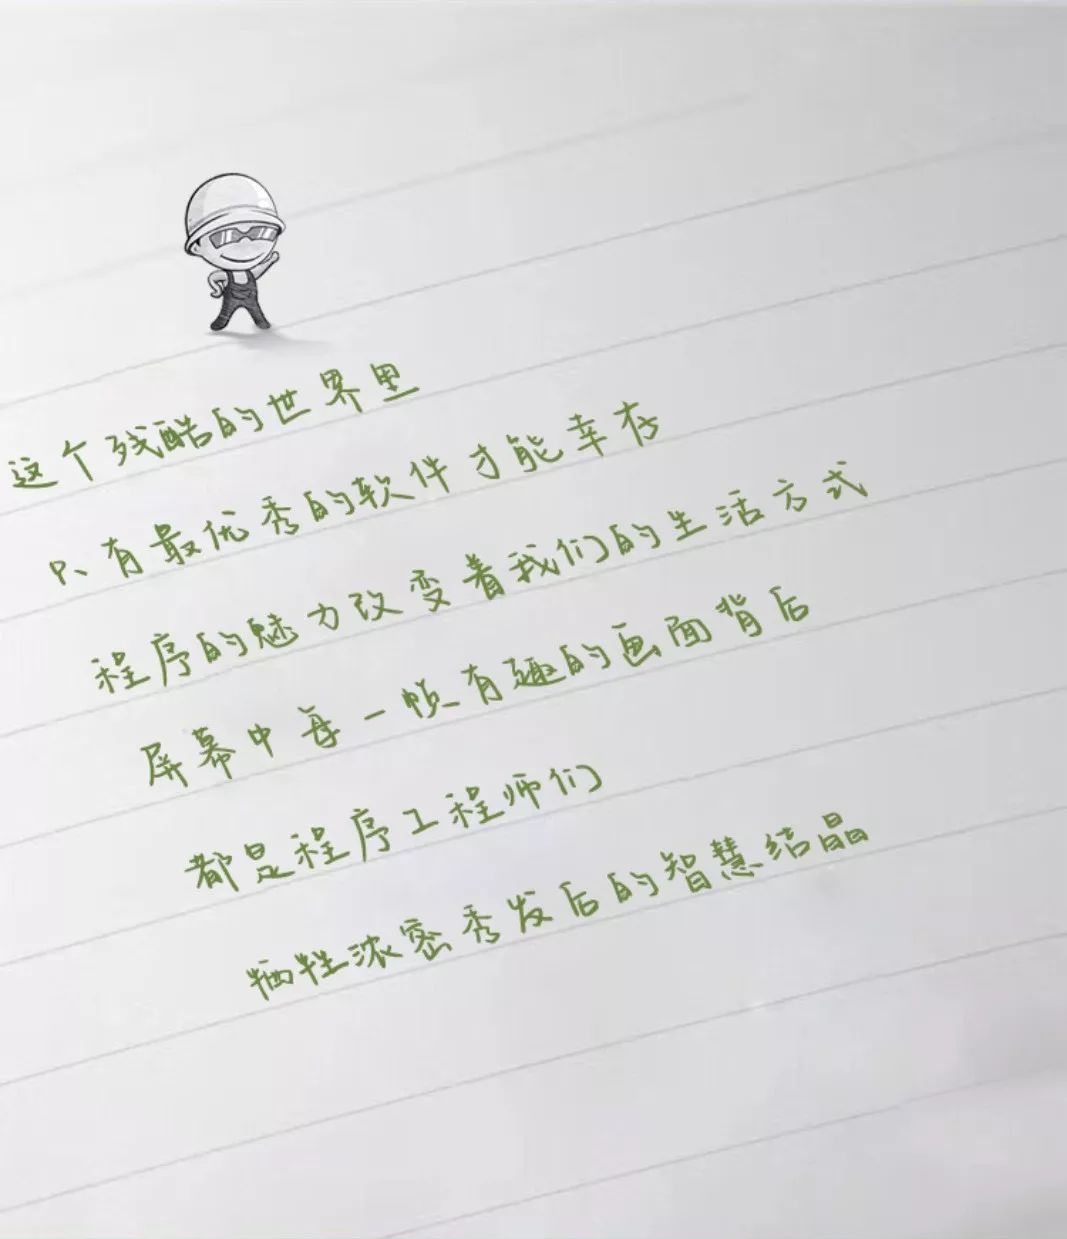 这个残酷的世界里
只有最优秀的软件才能幸存
程序的魅力改变着我们的生活方式
屏幕中每一帧有趣的画面背后
都是程序工程师们
牺牲浓密秀发后的智慧结晶